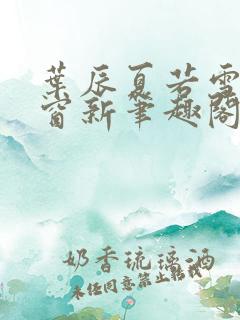 葉辰夏若雪
窗新筆趣閣
奶香琉璃酒
未经同意禁止转载